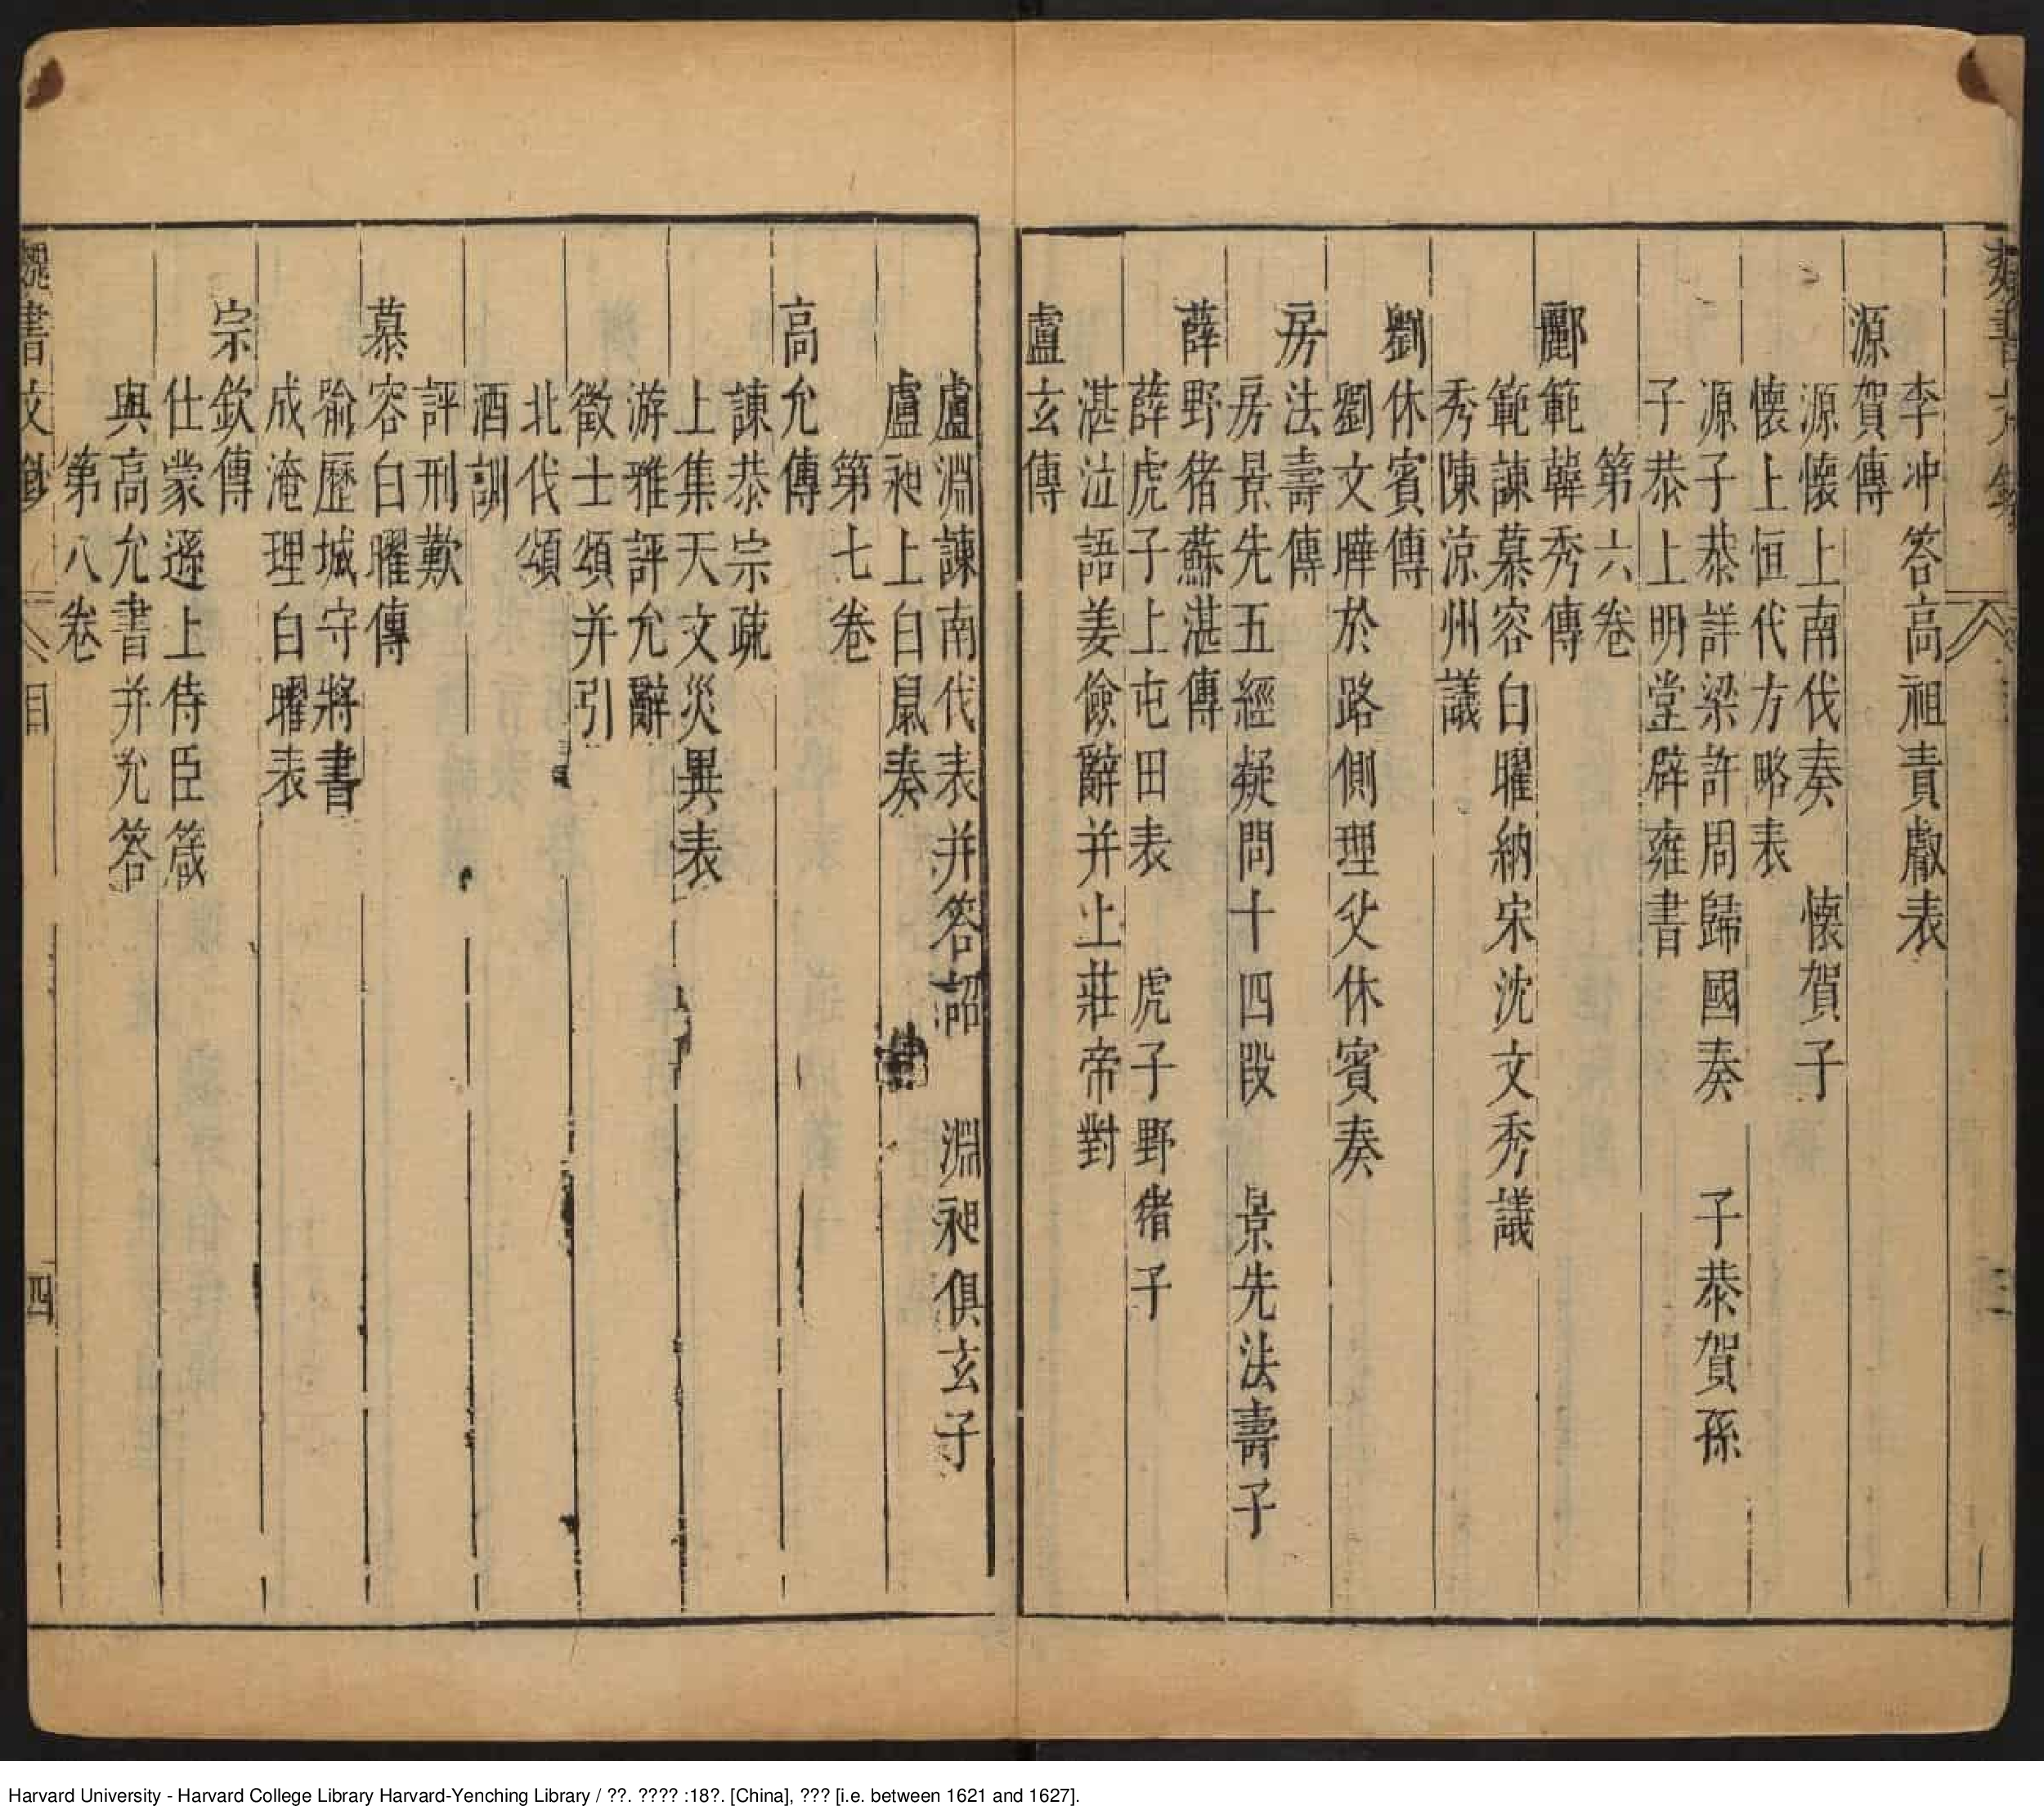 李冲答高祖責獻表
源賀傳
源懷上南伐奏　懷賀子
懷上恒代方略表
源子恭詳梁許周歸國奏　子恭賀孫
子恭上明堂辟雍書
第六卷
酈範韓秀傳
範諫慕容白曜納宋沈文秀議
秀陳涼州議
劉休賓傳
劉文曄於路側理父休賓奏
房法壽傳
房景先五經疑問十四段　景先法壽子
薛野猪蘇湛傳
薛虎子上屯田表　虎子野猪子
湛泣語姜儉辭并上莊帝對
盧玄傳
盧淵諫南伐表并答詔　淵昶俱玄子
盧昶上白鼠奏
第七卷
高允傳
諫恭宗疏
上集天文災異表
游雅評允辭
徵士頌并引
北伐頌
酒訓
評刑歎
慕容白曜傳
喻歷城守將書
成淹理白曜表
宗欽傳
仕蒙遜上侍臣箴
與高允書并允答
第八卷
魏書文鈔
目
四
Harvard University - Harvard College Library Harvard-Yenching Library / ??. ???? :18?. [China], ??? [i.e. between 1621 and 1627].